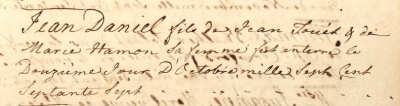 Jean Daniel fils de Jean Touet & de
Marie Hamon sa femme fut enterré le
Douzieme Jour D'Octobre mille Sept Cent
Septante Sept